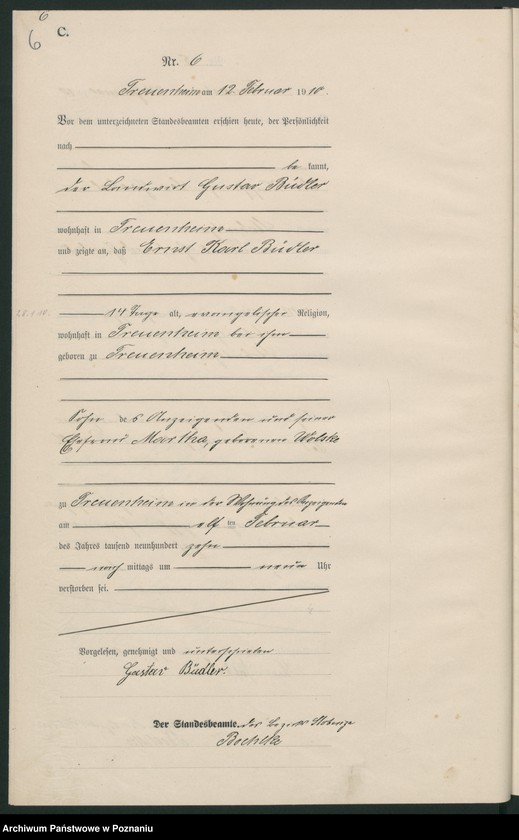 6
6
C.
Nr. 6
Treuenheim am 12. Februar 1910.
Vor dem unterzeichneten Standesbeamten erschien heute, der Persönlichkeit
nach
be kannt,
der Landwirt Gustav Büdler
wohnhaft in Treuenheim
und zeigte an, daß Ernst Karl Büdler
14 Tage alt, evangelischer Religion,
wohnhaft in Treuenheim bei ihm
geboren zu Treuenheim
Sohn des Anzeigenden und seiner
Ehefrau Martha, geborenen Wolske
zu Treuenheim in der Wohnung des Anzeigenden
am elf ten Februar
des Jahres tausend neunhundert zehn
nach mittags um neun Uhr
verstorben sei.
Vorgelesen, genehmigt und unterschrieben
Gustav Büdler.
Der Standesbeamte. des Bezirks
Archiwum Państwowe w Poznaniu